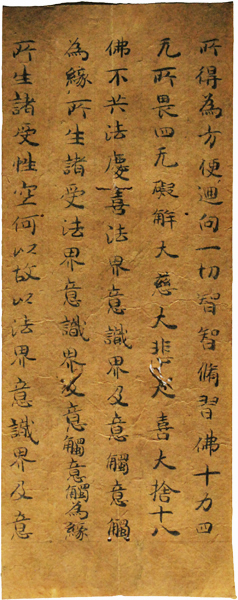 所得為方便迴向一切智智脩習佛十力四
无所畏四无礙解大慈大悲大喜大捨十八
佛不共法慶喜法界意識界及意觸意觸
為緣所生諸受法界意識界及意觸意觸為緣
所生諸受性空何以故以法界意識界及意